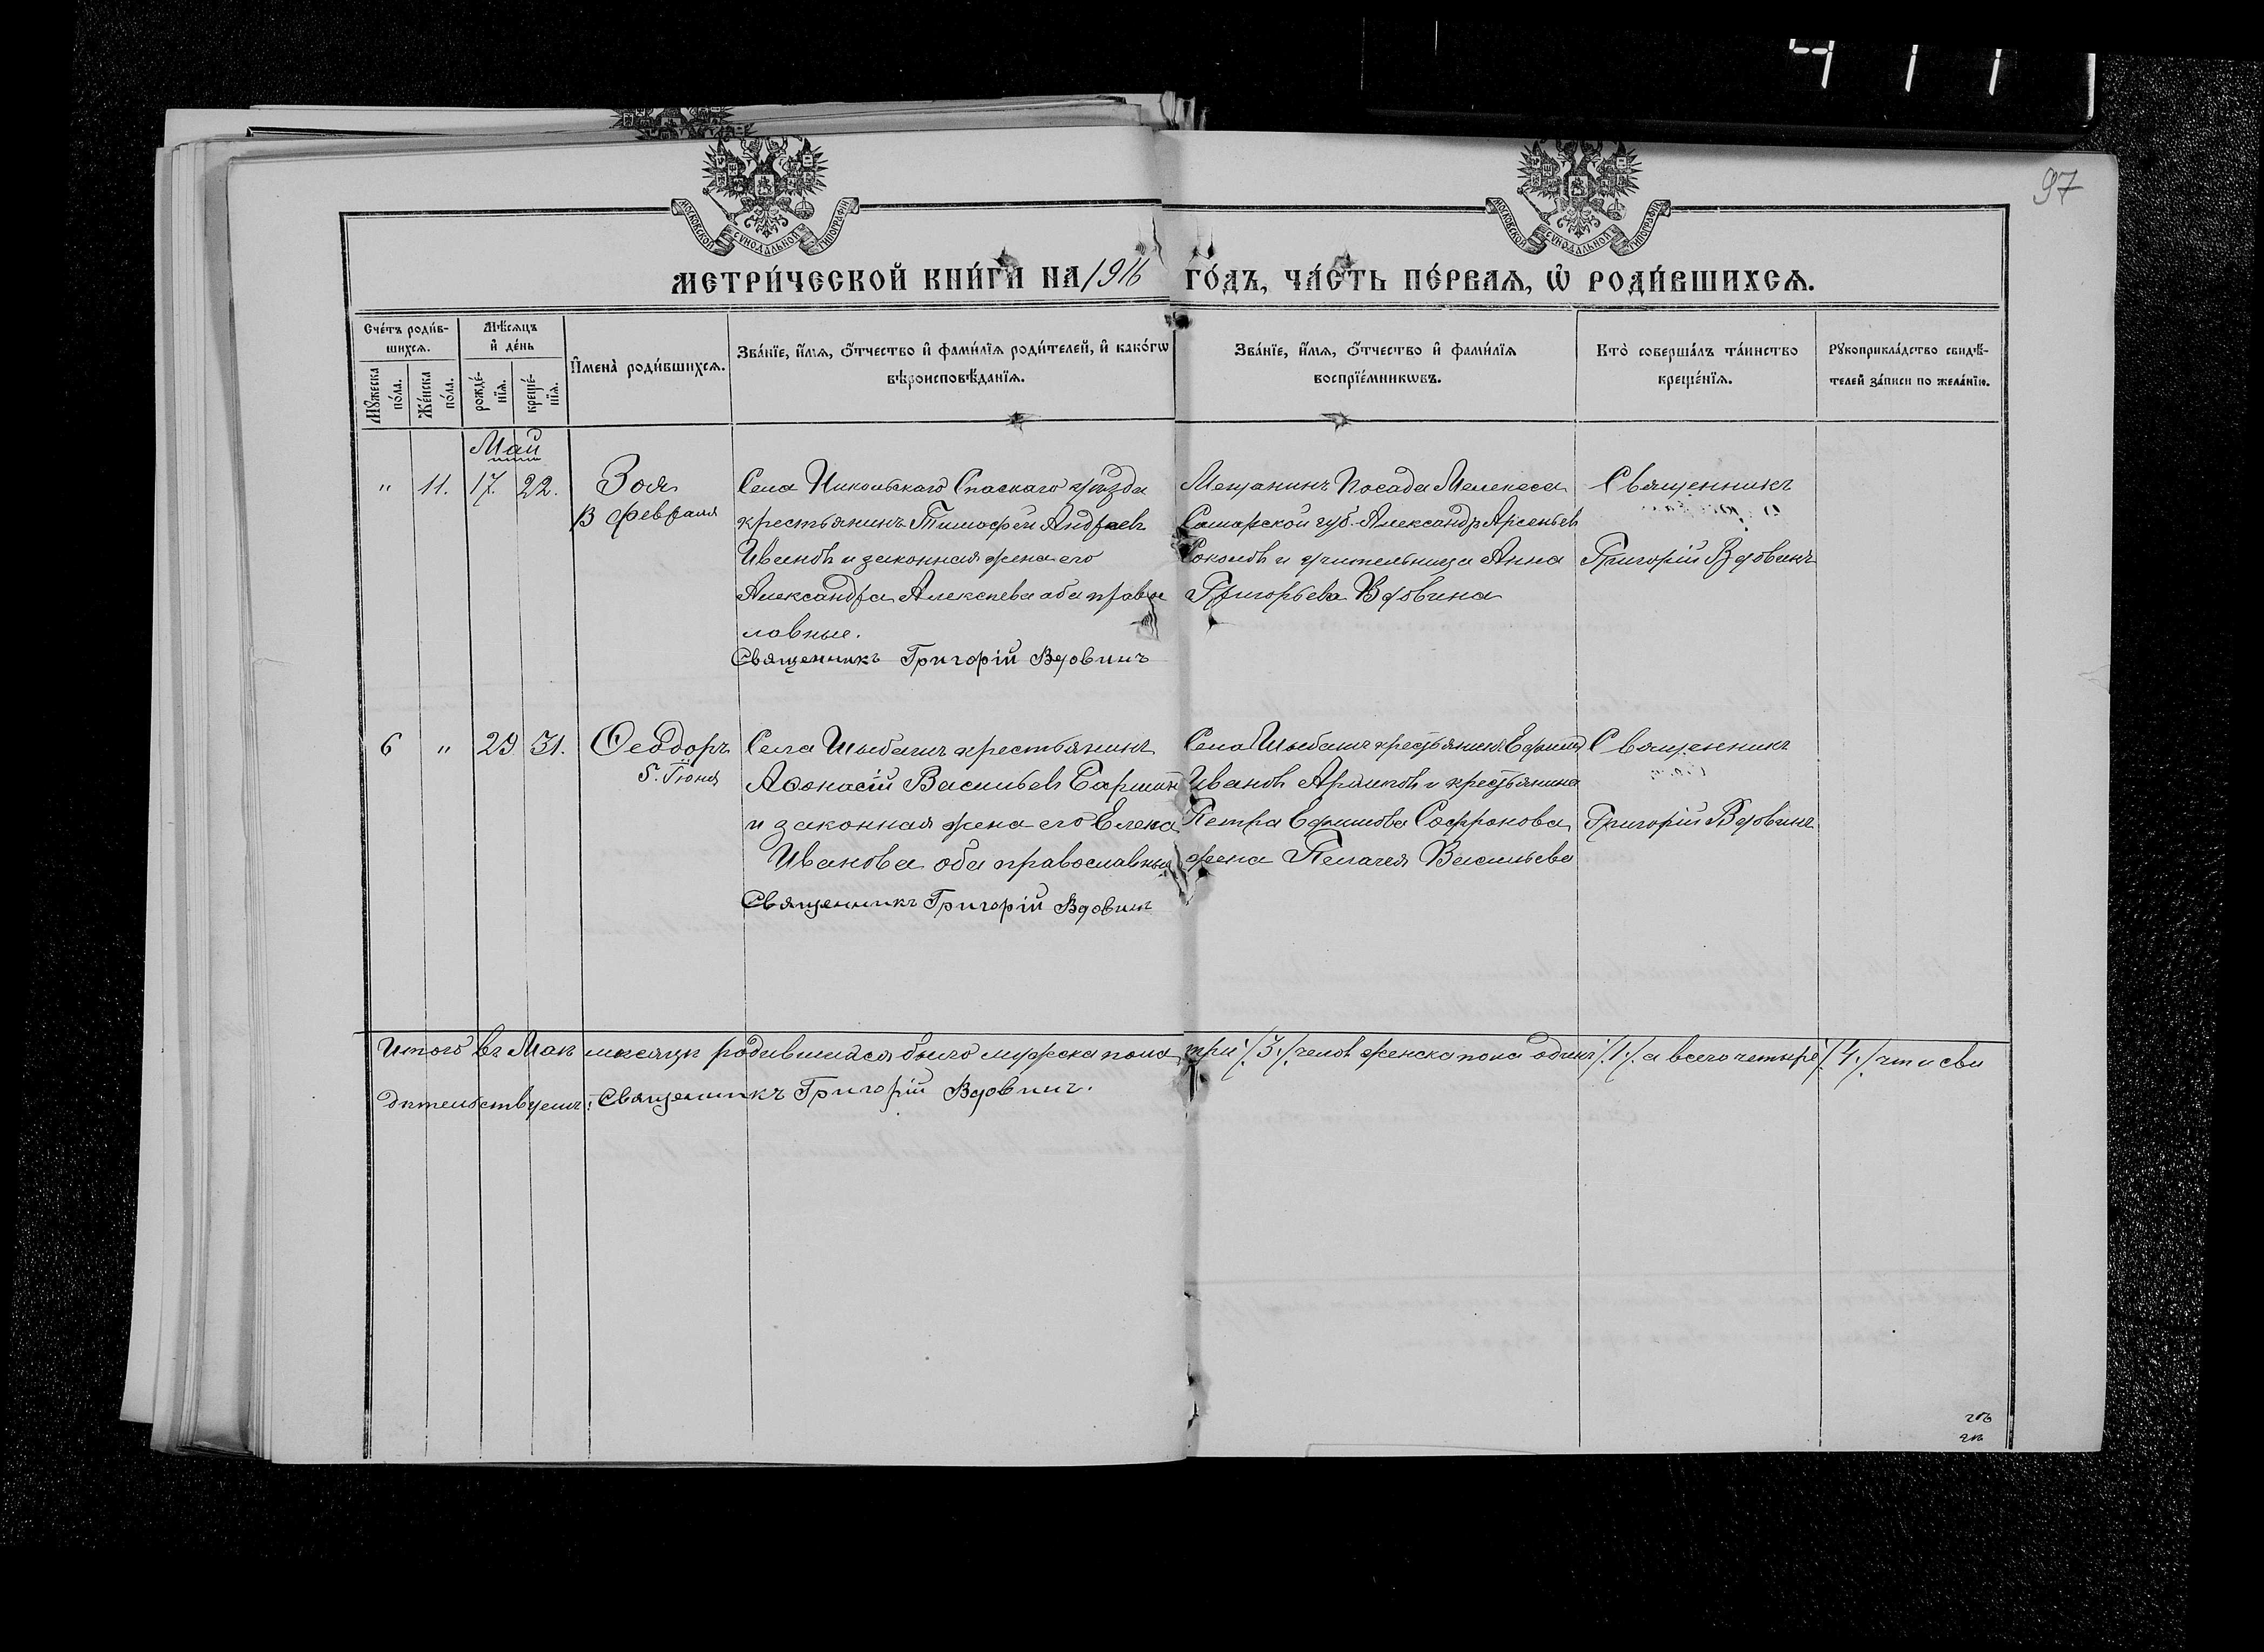 97
МОСКОВСКОЙ СУНОДАЛЬНОЙ ТИПОГРАФІИ
МОСКОВСКОЙ СУНОДАЛЬНОЙ ТИПОГРАФІИ
МЕТРИ́ЧЕСКОЙ КНИ́ГИ НА 1916 ГО́ДЪ, ЧА́СТЬ ПЕ́РВАЯ, Ѡ҆ РОДИ́ВШИХСЯ.
Сче́тъ роди́в-
шихся.
Мѣ́сяцъ
и҆ де́нь
Мꙋ́жеска
по́ла.
Же́нска
по́ла.
рожде́-
нїя.
креще́-
нїя.
И҆мена̀ роди́вшихся.
Зва́нїе, и҆́мя, ѻ҆́тчество и҆ фами́лїя роди́телей, и҆ како́гѡ
вѣроисповѣ́данїя.
Зва́нїе, и҆́мя, ѻ҆́тчество и҆ фами́лїя
воспрїе́мникѡвъ.
Кто̀ соверша́лъ та́инство
креще́нїя.
Рꙋкоприкла́дство свидѣ́-
телей за́писи по жела́нїю.
Май
" 11. 17. 22.
Зоя
13 Февраля
Села Никольскаго Спаскаго уѣзда
крестьянинъ Тимофей Андреевъ
Ивановъ и законная жена его
Александра Алексѣева оба правос
лавные.
Священникъ Григорій Вдовинъ
Мещанинъ Посада Мелекеса
Самарской губ. Александръ Арсеньевъ
Соколовъ и учительница Анна
Григорьева Вдовина
Священникъ
Григорій Вдовинъ
6 " 29 31.
Ѳеодоръ
5. Іюня
Села Шыбаши крестьянинъ
Аѳонасій Васильевъ Паршинъ
и законная жена его Елена
Иванова оба православные
Священникъ Григорій Вдовинъ
Села Шыбаши крестьянинъ Ефимъ
Ивановъ и крестьянина
Петра Ефимова Софронова
жена Пелагея Васильева
Священникъ
Григорій Вдовинъ
Итого въ Маѣ мѣсяцѣ родившихся было мужска пола три /.3./ челов женска пола одинъ /.1./ а всего четыре /.4./ что и сви
дѣтельствуемъ: Священникъ Григорій Вдовинъ.